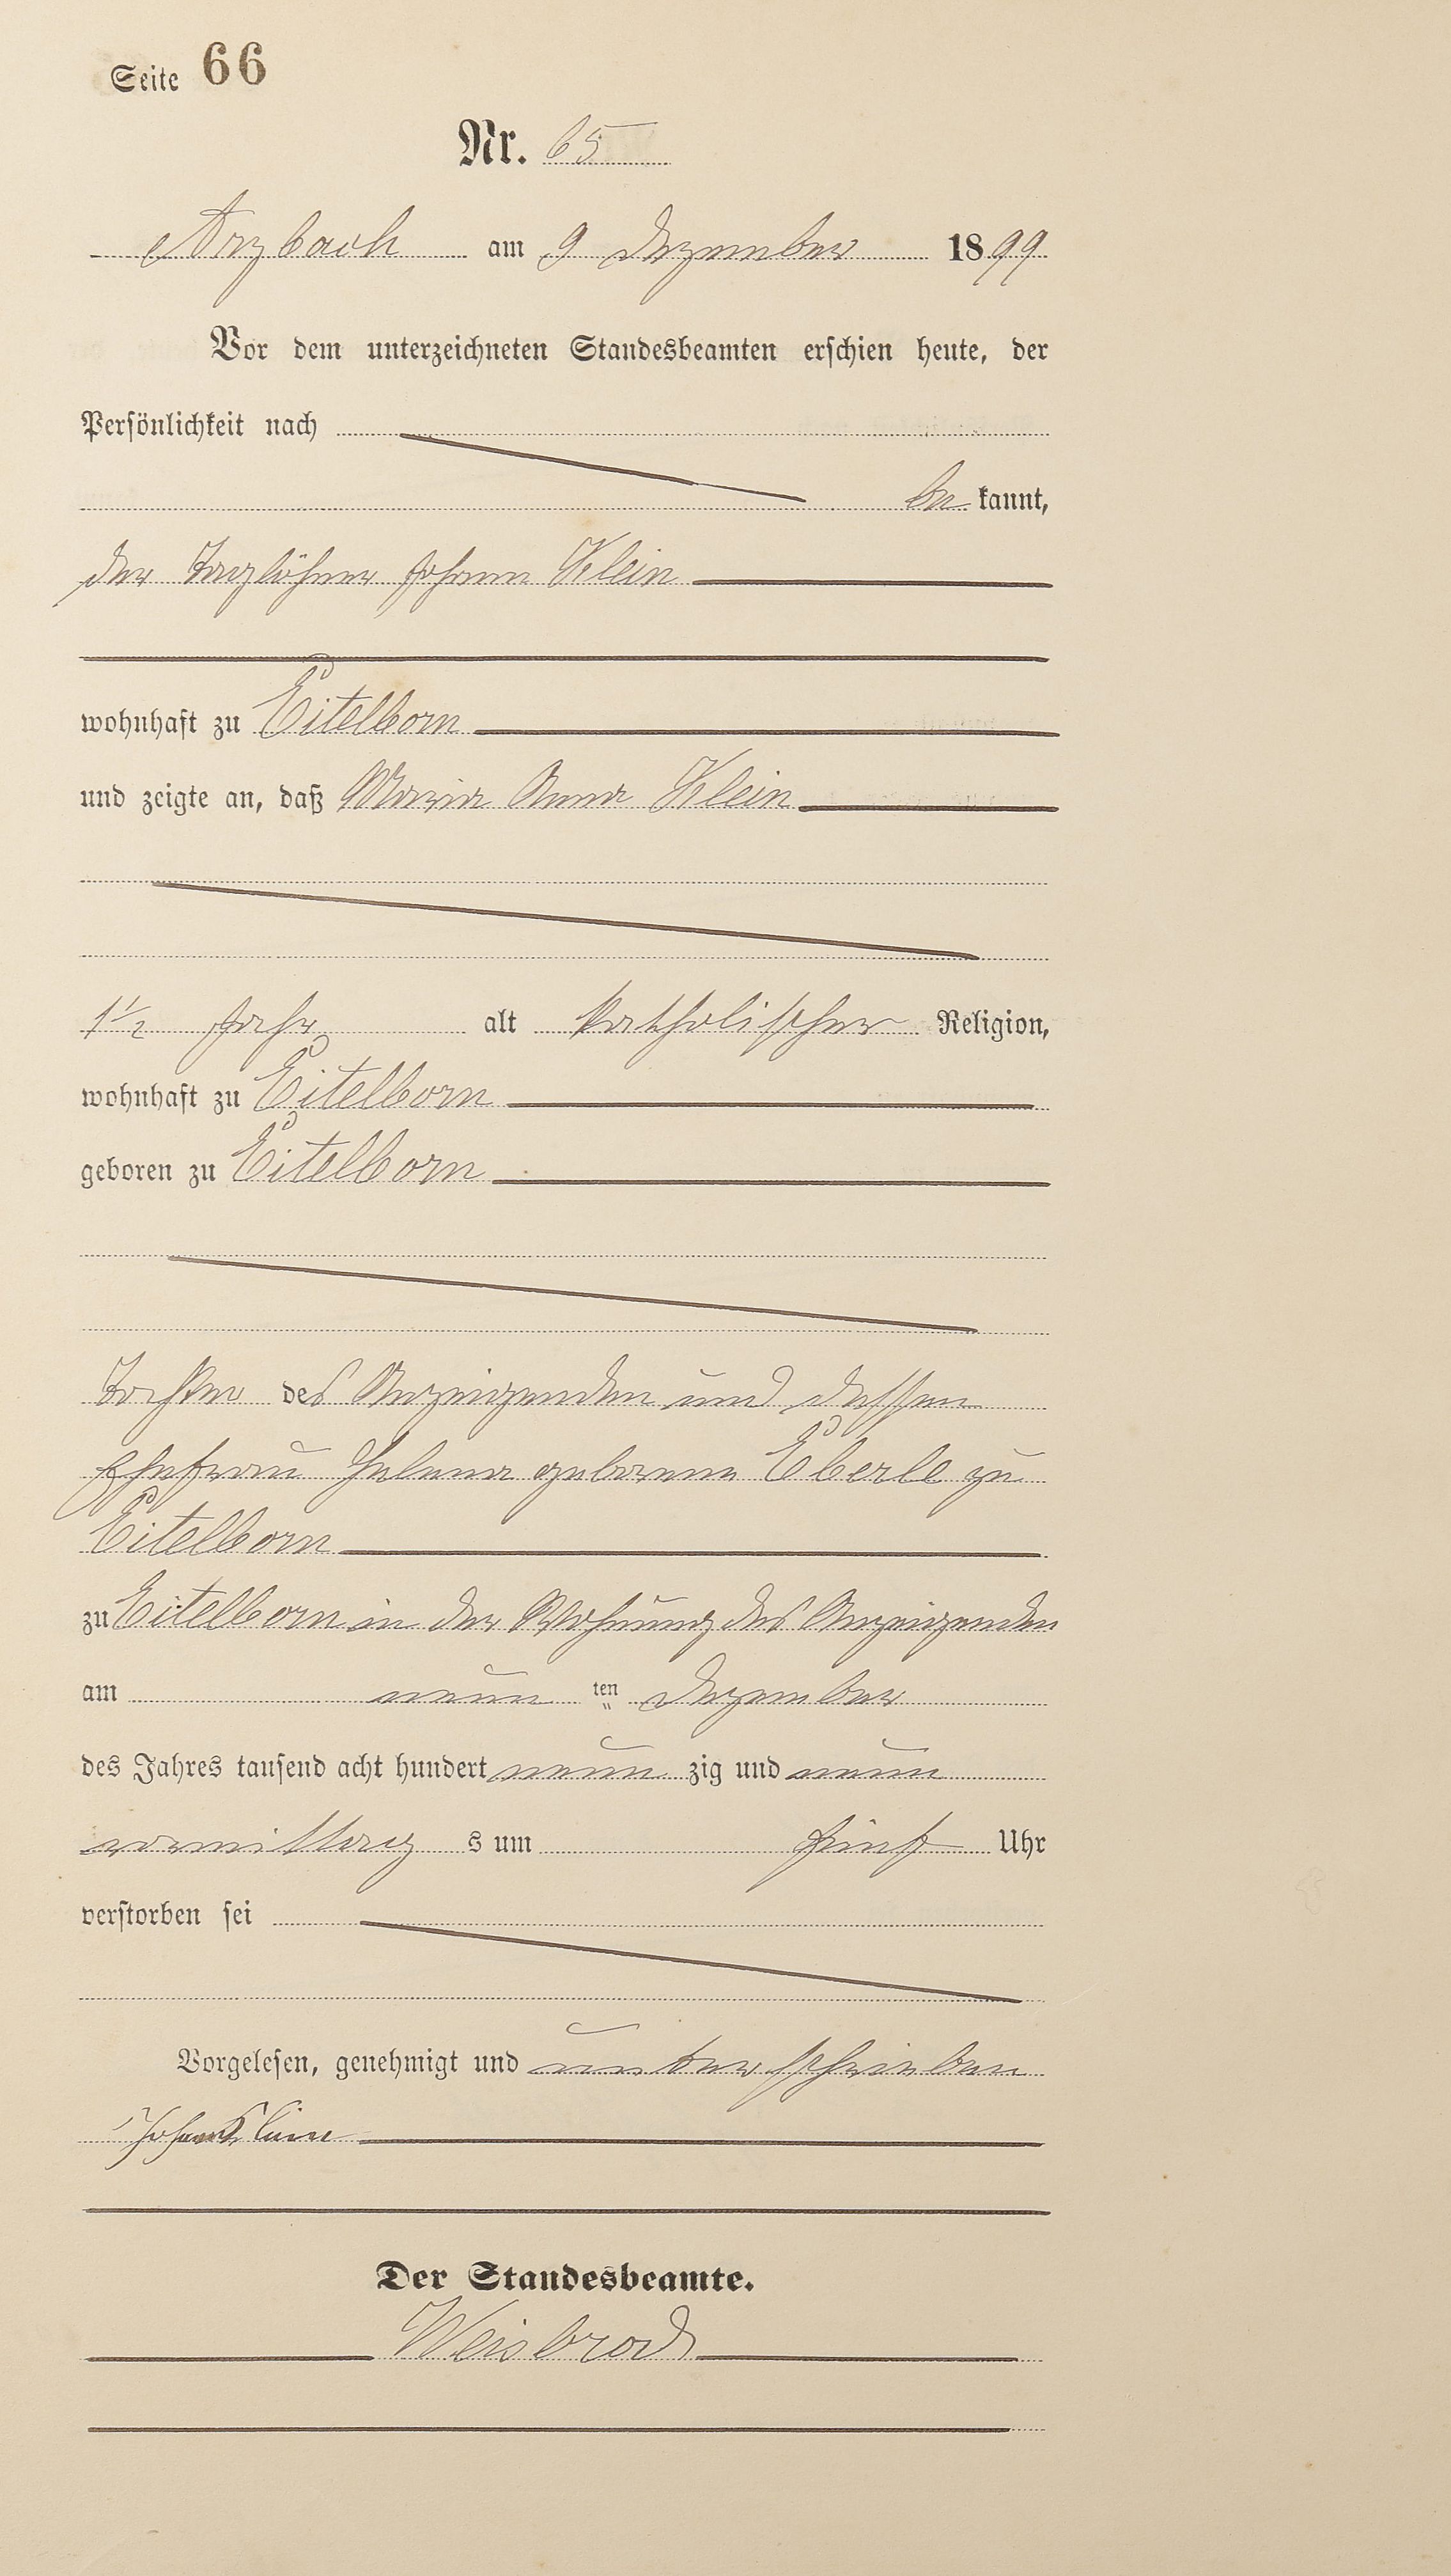 Seite 66
Nr. 65
Arzbach am 9 Dezember 1899
Vor dem unterzeichneten Standesbeamten erschien heute, der
Persönlichkeit nach
be kannt,
der Taglöhner Johann Klein
wohnhaft zu Eitelborn
und zeigte an, daß Maria Anna Klein
1½ Jahr alt katholischer Religion,
wohnhaft zu Eitelborn
geboren zu Eitelborn
Tochter des Anzeigenden und dessen
Ehefrau Helena geborene Eberle zu
Eitelborn
zu Eitelborn in der Wohnung des Anzeigenden
am neun ten Dezember
des Jahres tausend acht hundert neun zig und neun
vormittag s um fünf Uhr
verstorben sei
Vorgelesen, genehmigt und unterschrieben
Johann Klein
Der Standesbeamte.
Weisbrod